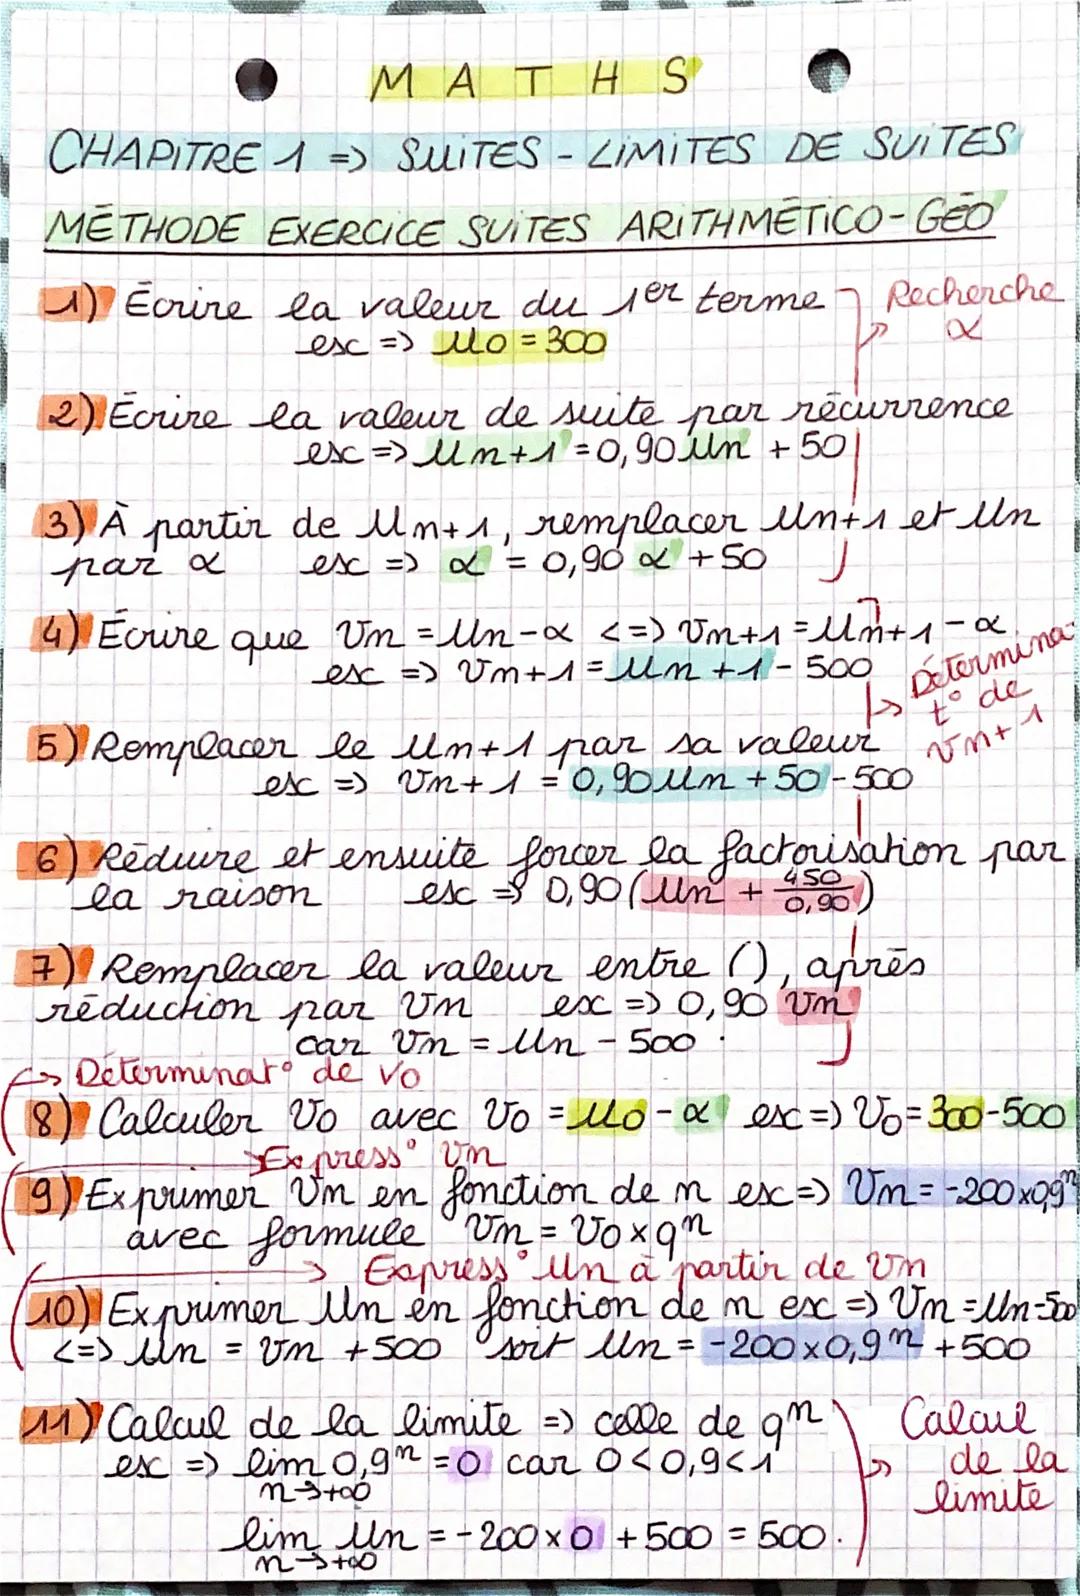 MATHS
CHAPITRE 1 => SUITES - LIMITES DE SUITES
MÉTHODE EXERCICE SUITES ARITHMÉTICO-GÉO
1) Écrire la valeur du 1er terme
Recherche
α
ex => U0 = 300
2) Écrire la valeur de suite par récurrence
ex => Un+1 = 0,90 Un + 50
3) À partir de Un+1, remplacer Un+1 et Un
par α ex => α = 0,90 α + 50
4) Écrire que Vn = Un - α <=> Vn+1 = Un+1 - α
ex => Vn+1 = Un+1 - 500
Détermina-
t° de
Vn+1
5) Remplacer le Un+1 par sa valeur
ex => Vn+1 = 0,90 Un + 50 - 500
6) Réduire et ensuite forcer la factorisation par
la raison ex => 0,90 (Un + 450/0,90)
7) Remplacer la valeur entre (), après
réduction par Vn ex => 0,90 Vn
car Vn = Un - 500.
-> Déterminat° de V0
8) Calculer V0 avec V0 = U0 - α ex => V0 = 300-500
-> Express° Vn
9) Exprimer Vn en fonction de n ex => Vn = -200 x 0,9ⁿ
avec formule Vn = V0 x qⁿ
-> Express° Un à partir de Vn
10) Exprimer Un en fonction de n ex => Vn = Un-500
<=> Un = Vn + 500 soit Un = -200 x 0,9ⁿ + 500
11) Calcul de la limite => celle de qⁿ
ex => lim 0,9ⁿ = 0 car 0 < 0,9 < 1
n->+∞
lim Un = -200 x 0 + 500 = 500.
n->+∞
Calcul
de la
limite